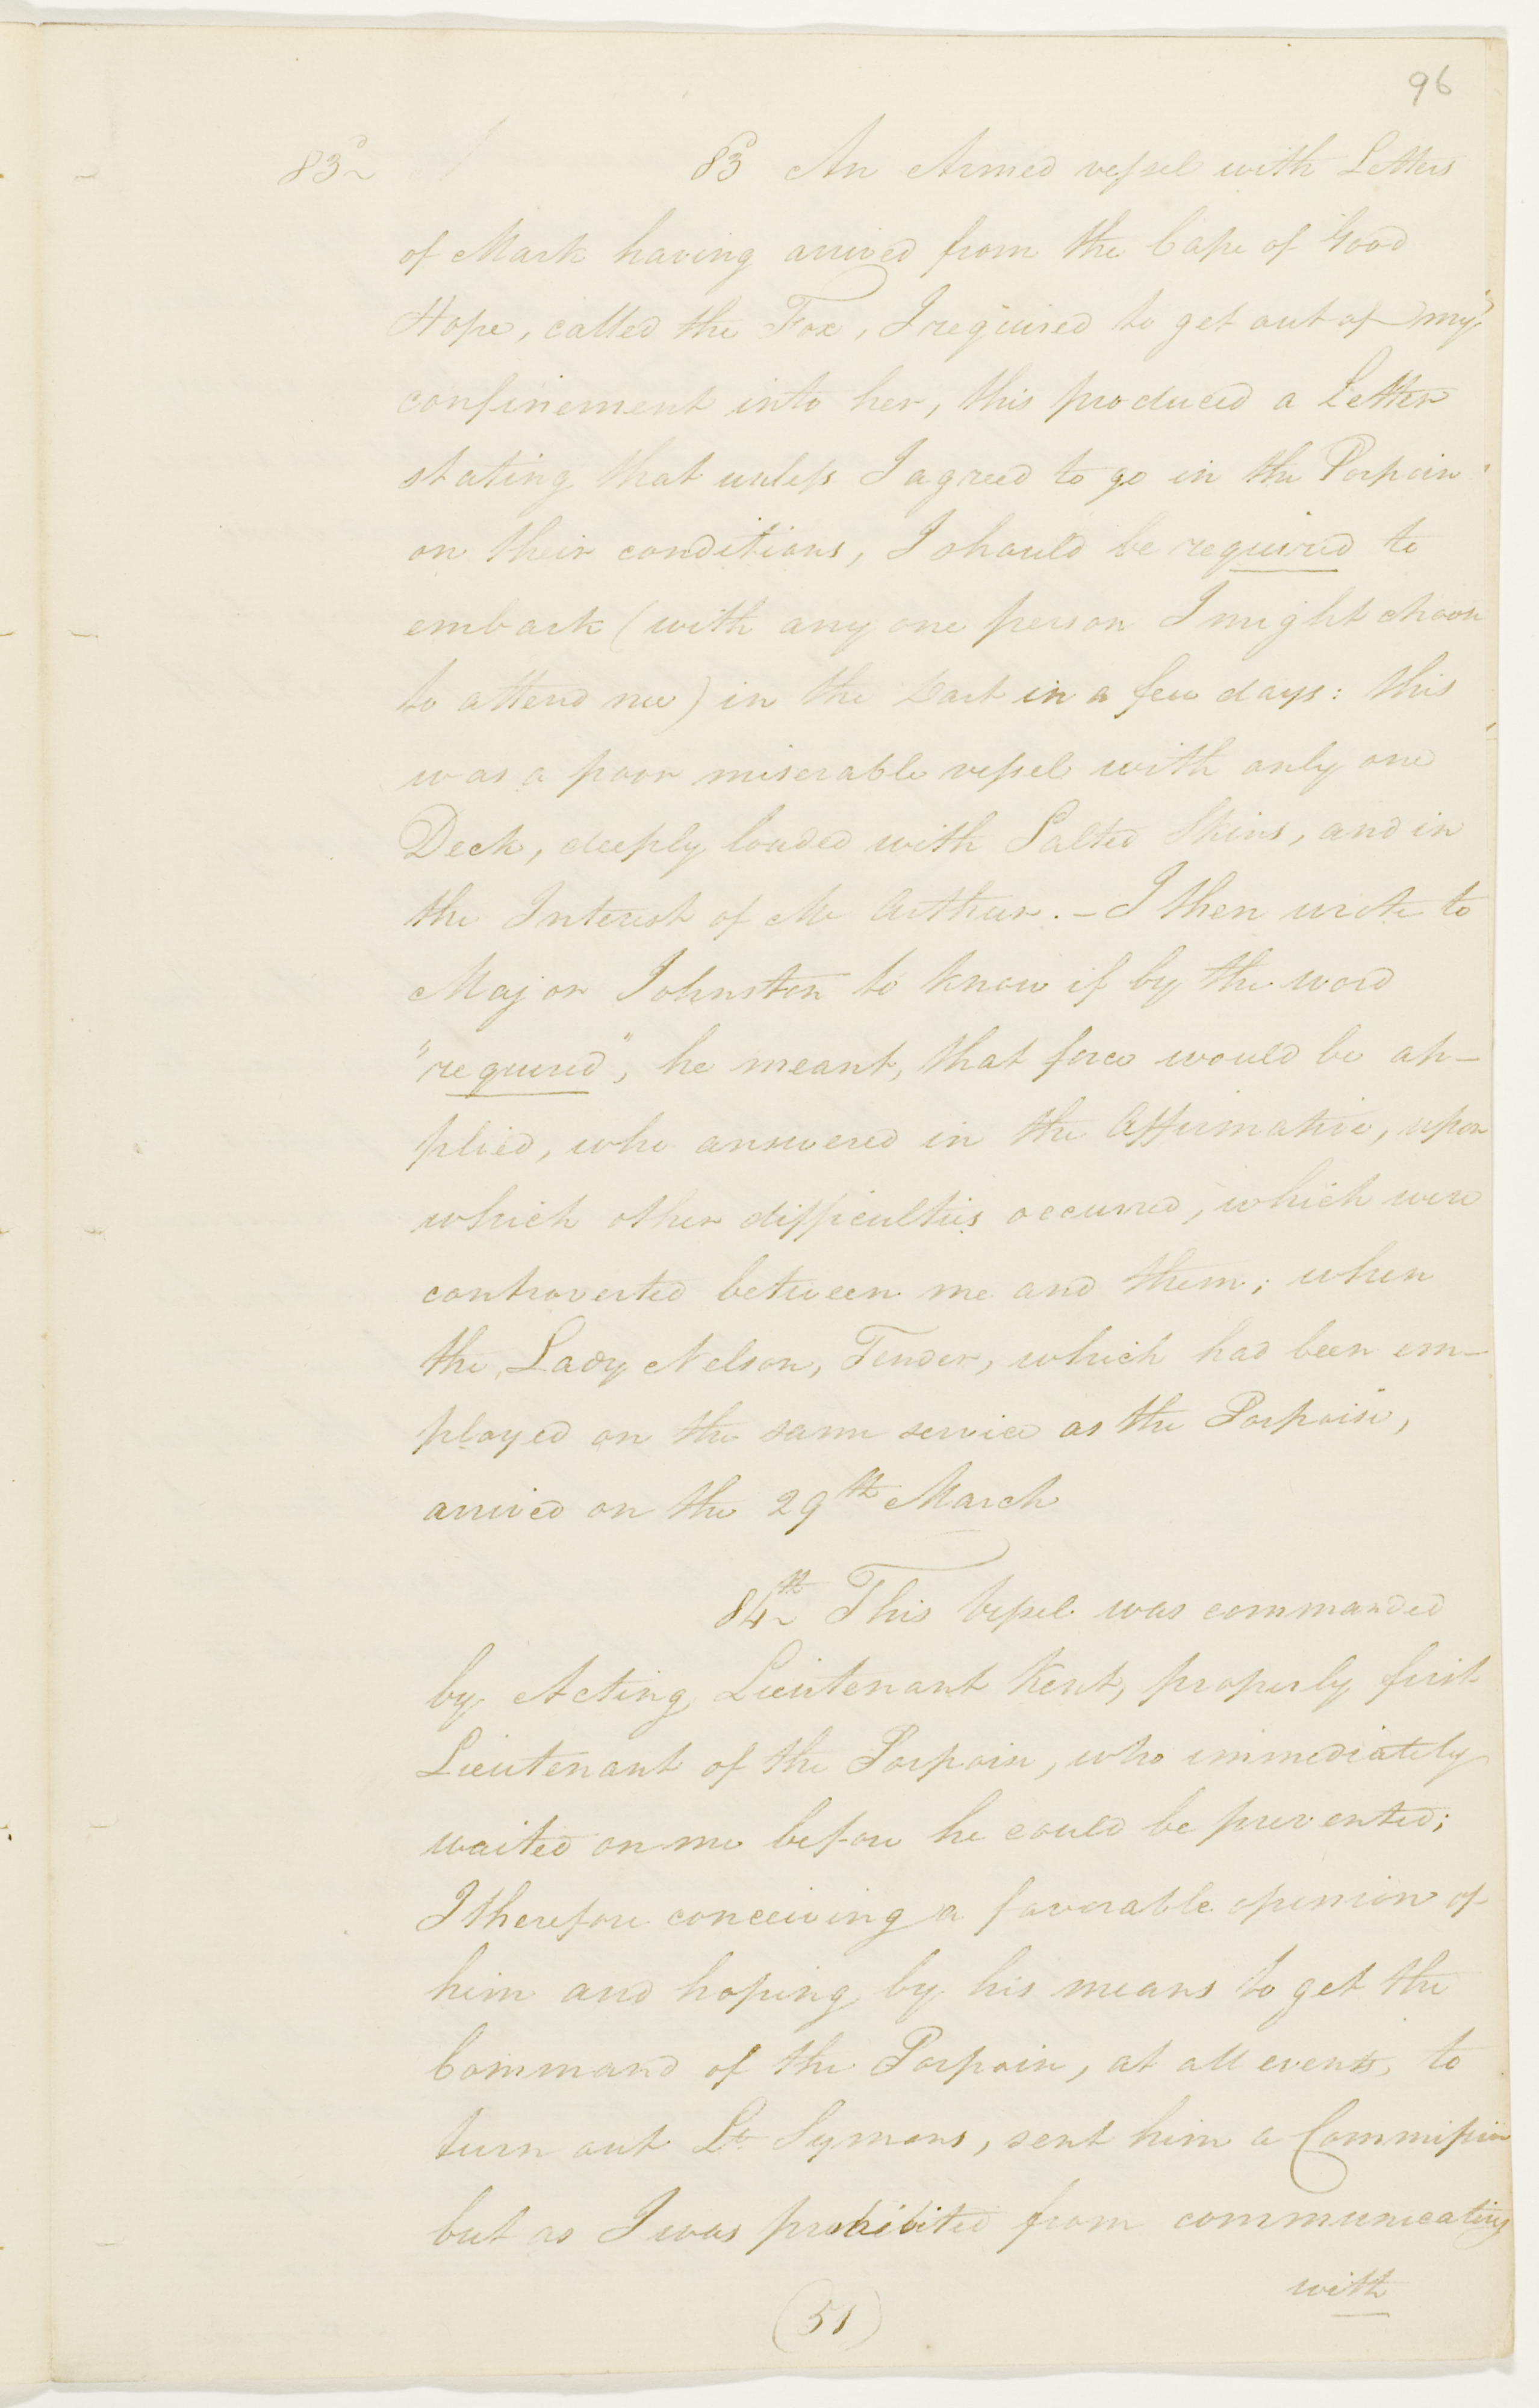 96
83d 83d An Armed vessel with Letters
of Mark having arrived from the Cape of Good
Hope, called the Fox, I required to get out of my
confinement into her, this produced a Letter
stating that unless I agreed to go in the Porpoise
on their conditions, I should be required to
embark (with any one person I might choose
to attend me) in the Dart in a few days: this
was a poor miserable vessel with only one
Deck, deeply loaded with Salted Skins, and in
the Interest of Mc Arthur. - I then wrote to
Major Johnston to know if by the word
"required", he meant, that force would be ap-
plied, who answered in the Affirmative, upon
which other difficulties occurred, which were
controverted between me and them; when
the Lady Nelson, Tender, which had been em-
ployed on the same service as the Porpoise,
arrived on the 29th March
84th This Vessel was commanded
by Acting Lieutenant Kent, properly first
Lieutenant of the Porpoise, who immediately
waited on me before he could be prevented;
I therefore conceiving a favorable opinion of
him and hoping by his means to get the
Command of the Porpoise, at all events, to
turn out Lt. Symons, sent him a Commission
but as I was prohibited from communicating
with
(51)